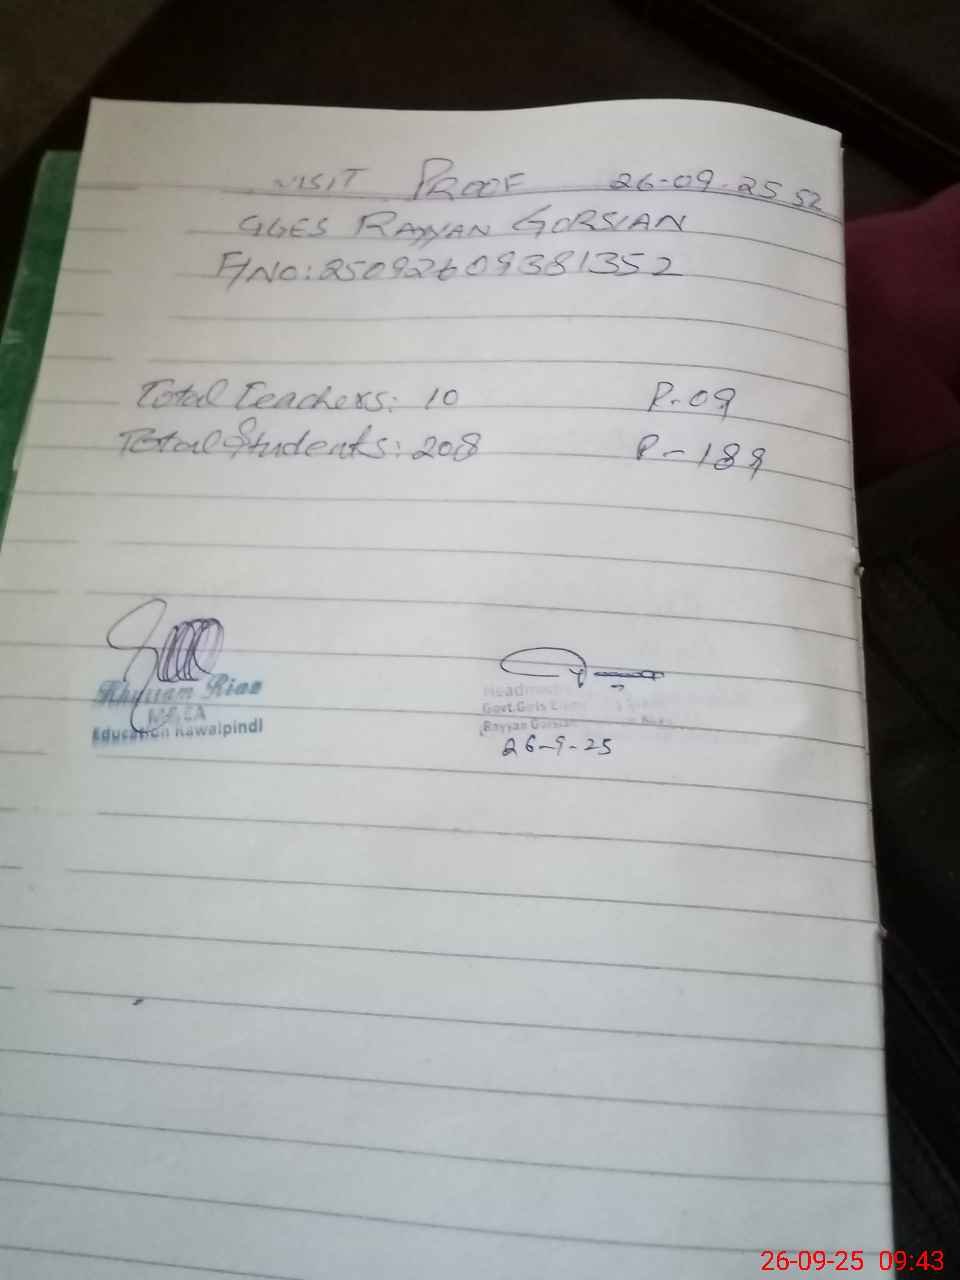 VISIT PROOF 26-09-25 52
GGES RAYYAN GORSIAN
F/NO: 25092609381352
Total Teachers: 10 P-09
Total Students: 208 P-189
Khyuam Riaz
MEA
Education Rawalpindi
Headm
Govt. Girls Elem
Rayyan Gorsian
26-9-25
26-09-25 09:43